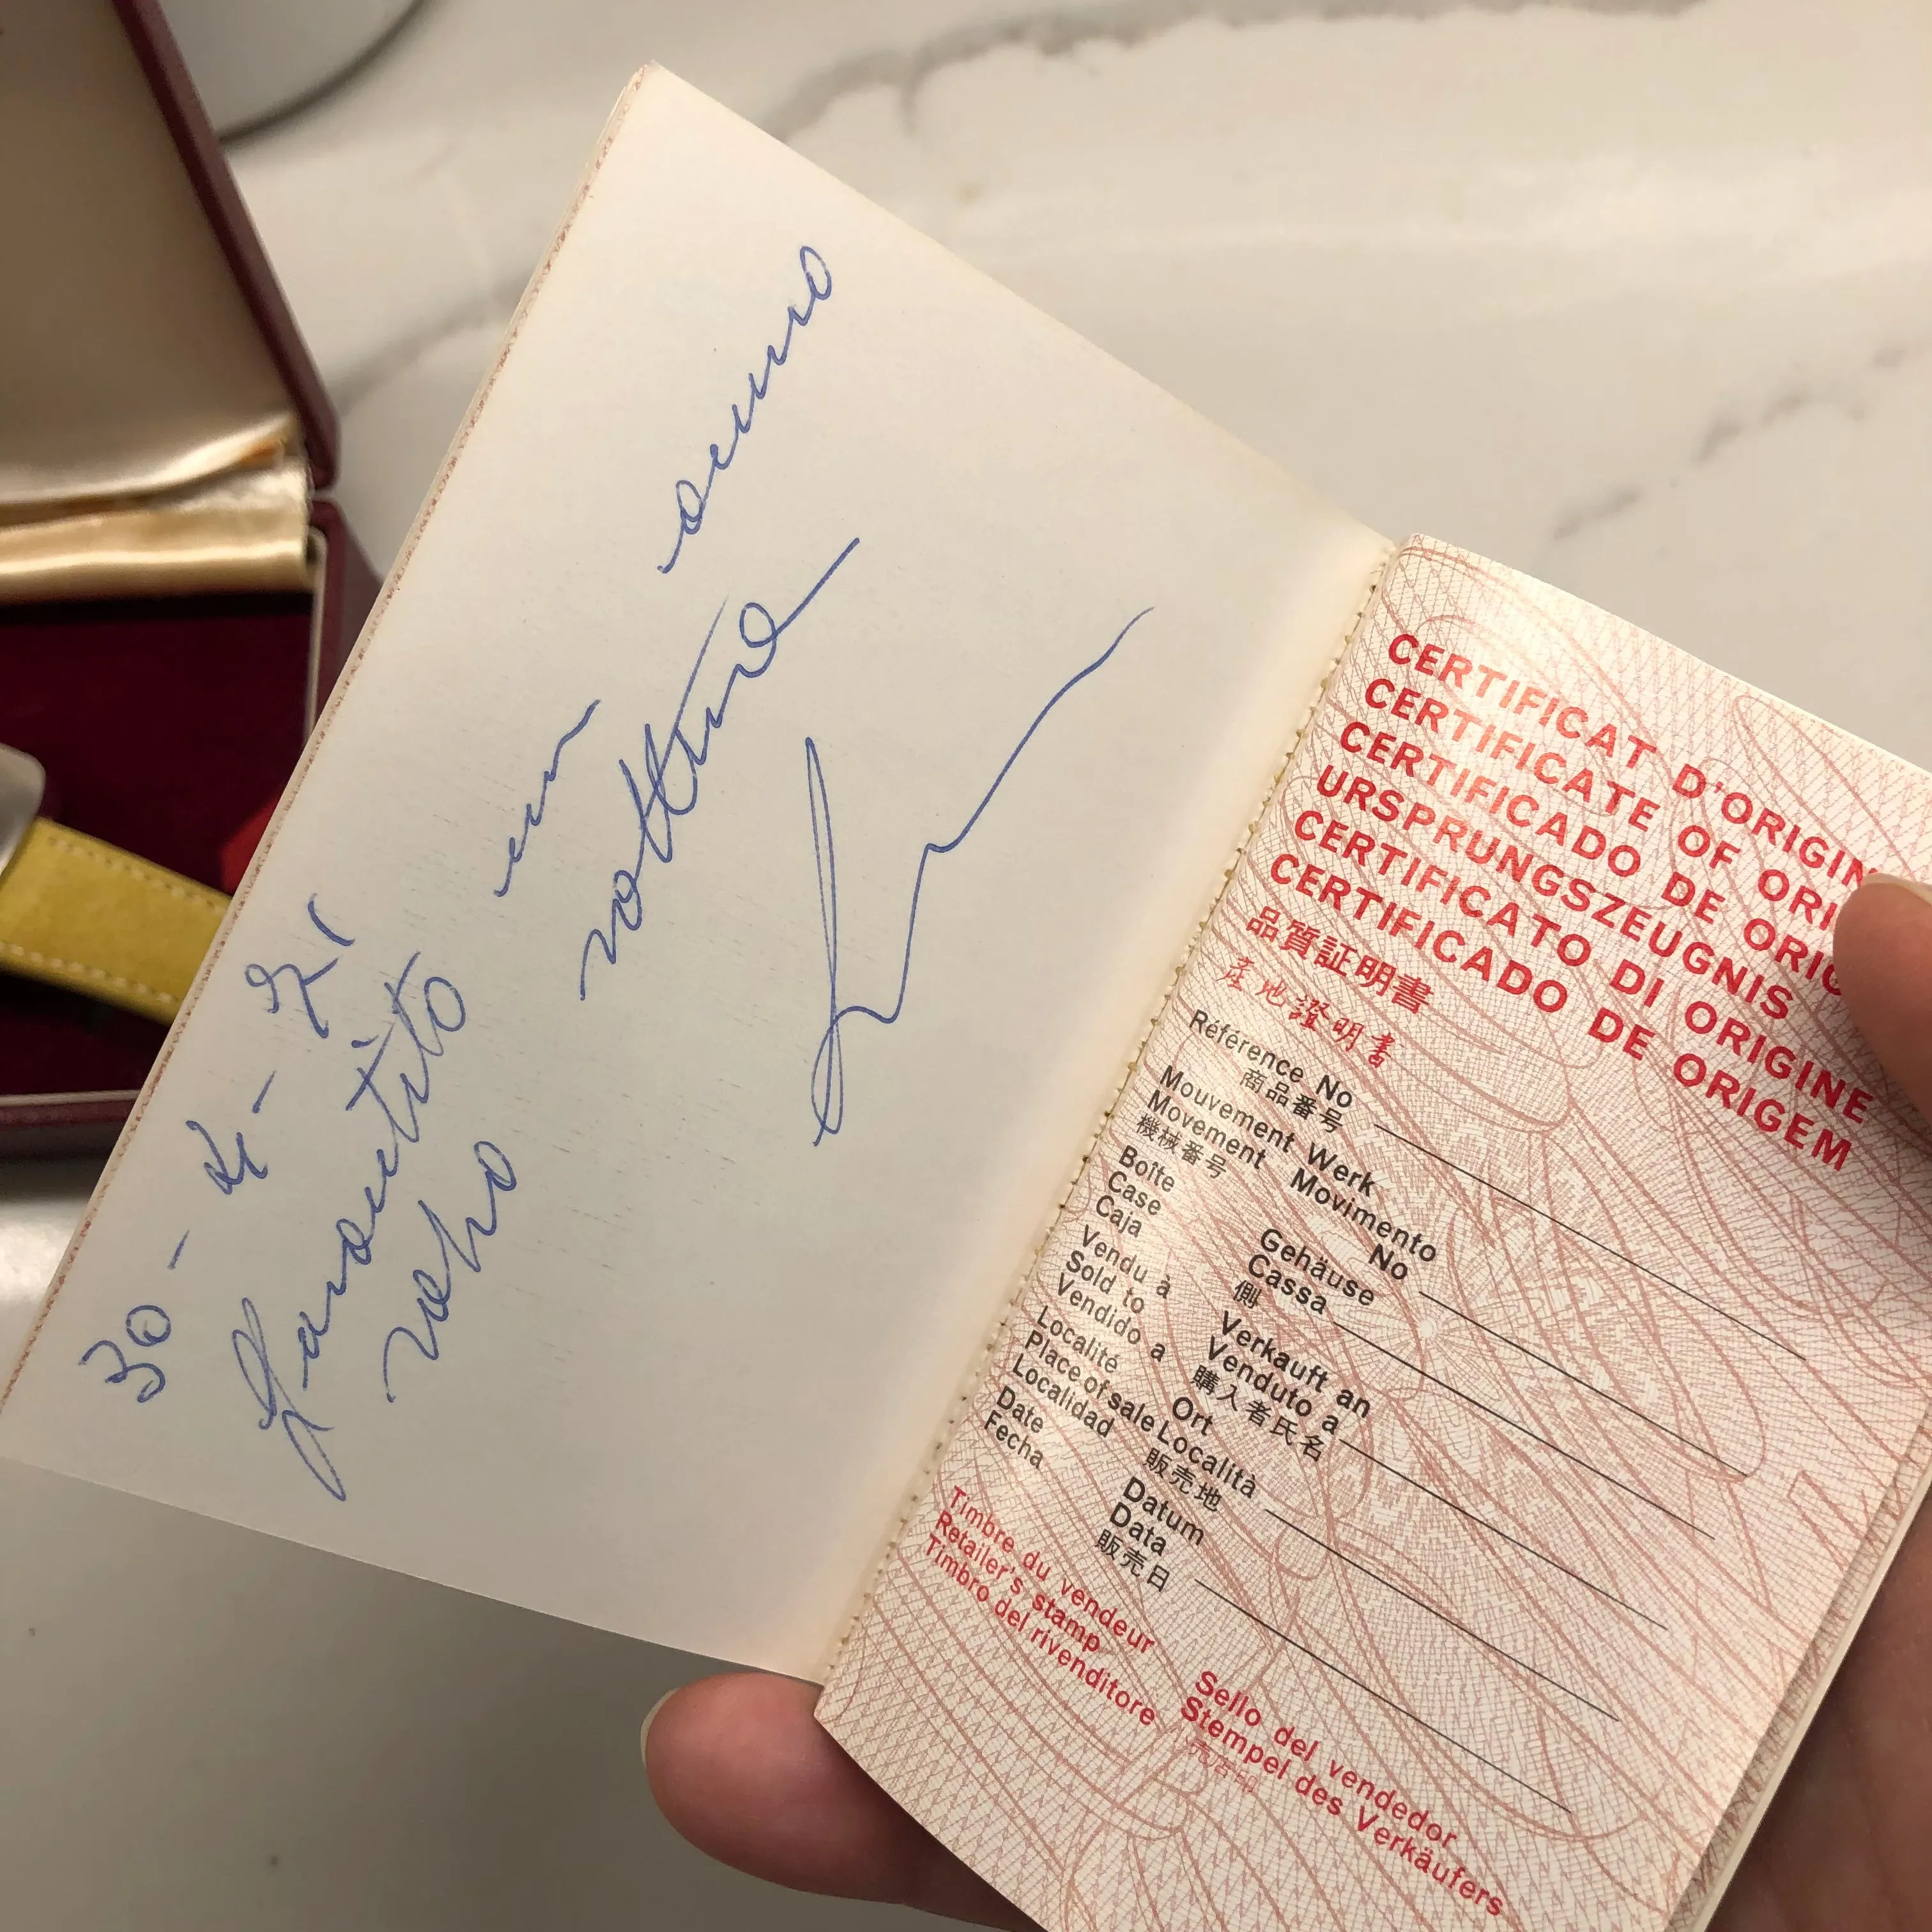 30-4-71
Garantito un anno
salvo rottura
CERTIFICAT D'ORIGIN
CERTIFICATE OF ORI
CERTIFICADO DE ORIG
URSPRUNGSZEUGNIS
CERTIFICATO DI ORIGINE
CERTIFICADO DE ORIGEM
品質証明書
產地證明書
Référence No
商品番号
Mouvement Werk
Movement Movimento
機械番号 No
Boîte Gehäuse
Case Cassa
Caja 側
Vendu à Verkauft an
Sold to Venduto a
Vendido a 購入者氏名
Localité Ort
Place of sale Località
Localidad 販売地
Date Datum
Fecha Data
販売日
Timbre du vendeur Sello del vendedor
Retailer's stamp Stempel des Verkäufers
Timbro del rivenditore 売店印